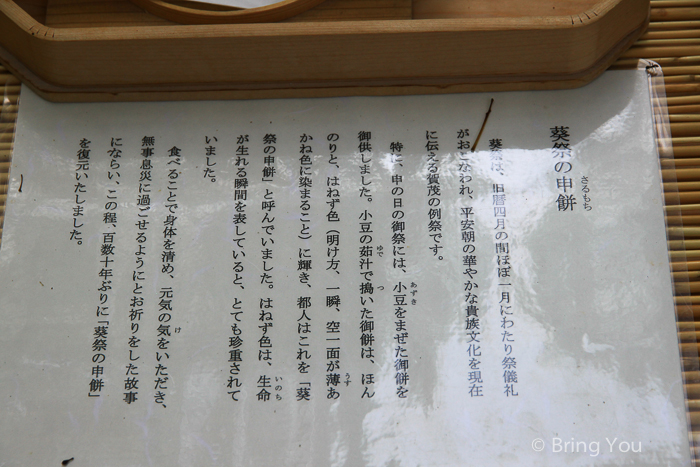 葵祭の申餅
さるもち
葵祭は、旧暦四月の間ほぼ一月にわたり祭儀礼
がおこなわれ、平安朝の華やかな貴族文化を現在
に伝える賀茂の例祭です。
特に、申の日の御祭には、小豆をまぜた御餅を
あずき
御供しました。小豆の茹汁で搗いた御餅は、ほん
ゆで
つ
のりと、はねず色（明け方、一瞬、空一面が薄あ
うす
かね色に染まること）に輝き、都人はこれを「葵
祭の申餅」と呼んでいました。はねず色は、生命
いのち
が生れる瞬間を表していると、とても珍重されて
いました。
食べることで身体を清め、元気の気をいただき、
け
無事息災に過ごせるようにとお祈りをした故事
にならい、この程、百数十年ぶりに「葵祭の申餅」
を復元いたしました。
© Bring You